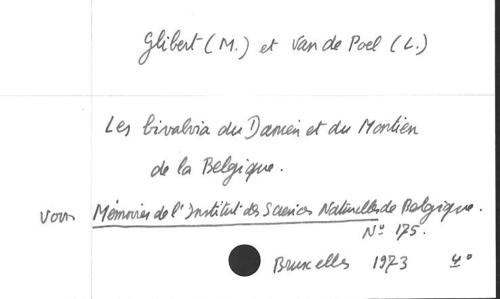 Glibert (M.) et Van de Poel (L.)
Les bivalvia du Danien et du Montien
de la Belgique.
voir Mémoires de l'Institut des Sciences Naturelles de Belgique.
N° 175.
Bruxelles 1973 4°